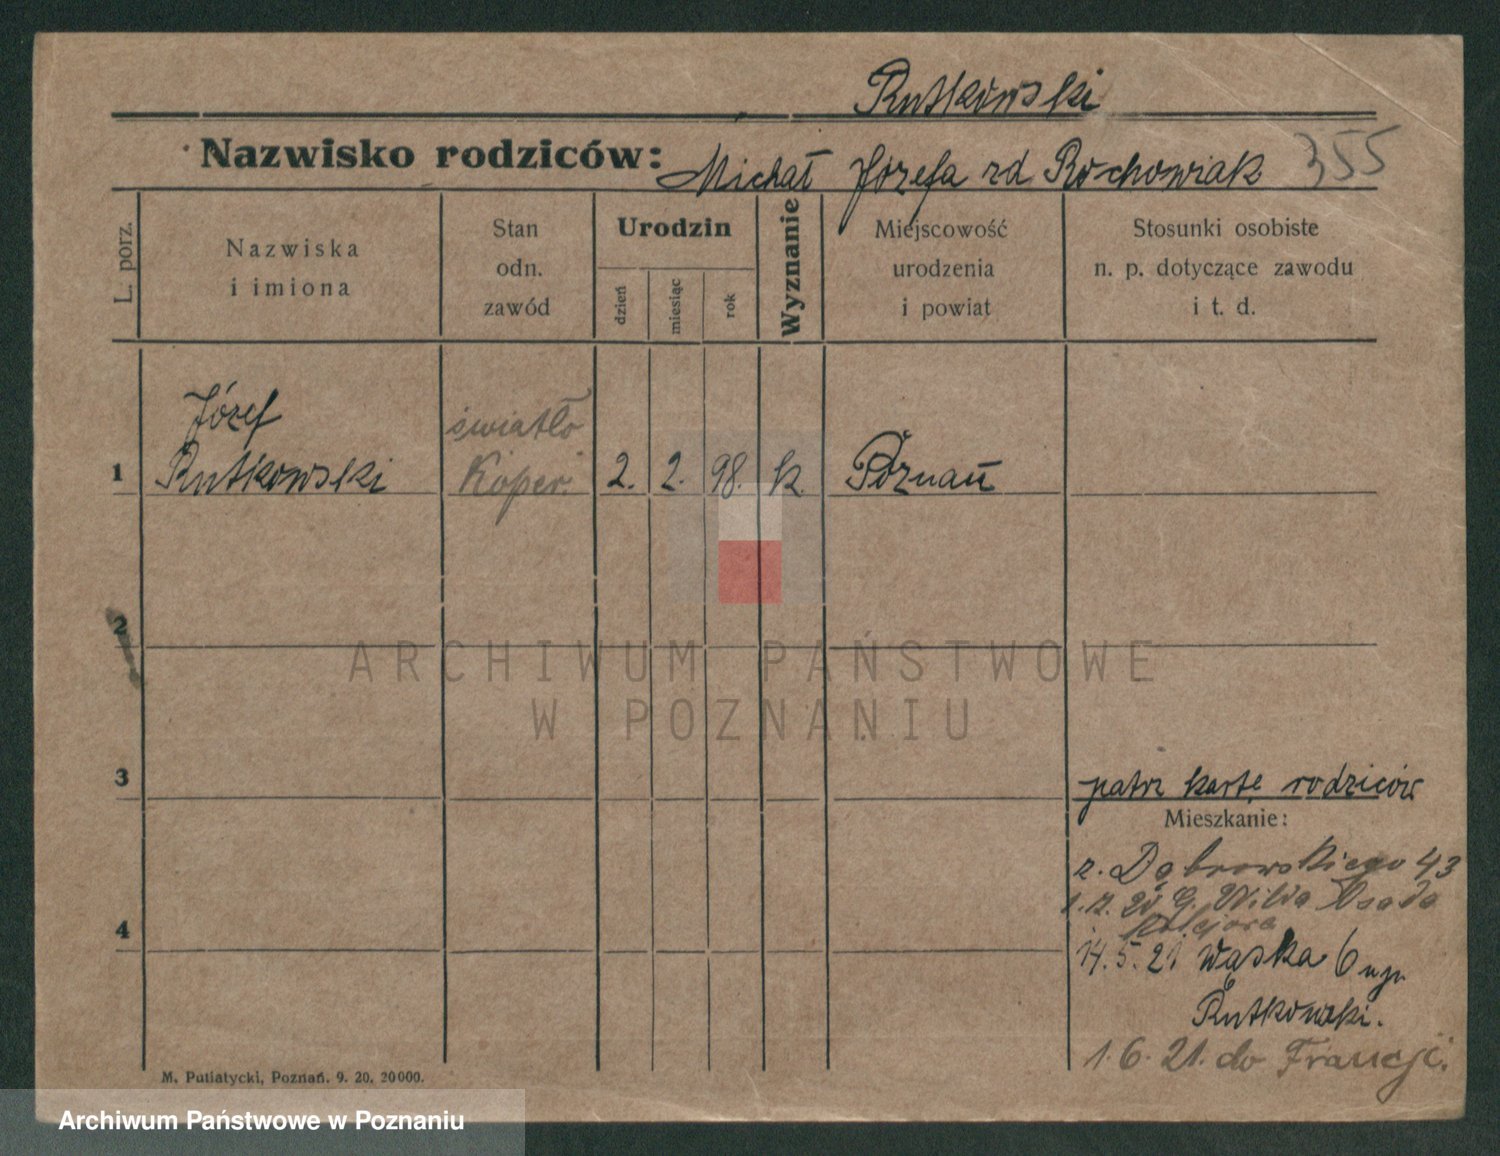 Rutkowski
Nazwisko rodziców: Michał Józefa rd Rochowiak 355
L. porz.
Nazwiska
i imiona
Stan
odn.
zawód
Urodzin
dzień
miesiąc
rok
Wyznanie
Miejscowość
urodzenia
i powiat
Stosunki osobiste
n. p. dotyczące zawodu
i t. d.
Józef
światło
1 Rutkowski Kopier. 2. 2. 98. k. Poznań
2
ARCHIWUM PAŃSTWOWE
W POZNANIU
3
patrz kartę rodziców
Mieszkanie:
z. Dąbrowskiego 43
G. Wilda Osada
4
14.5.21 Wąska 6
Rutkowski.
1.6.21. do Francji.
M. Putiatycki, Poznań. 9. 20. 20000.
Archiwum Państwowe w Poznaniu